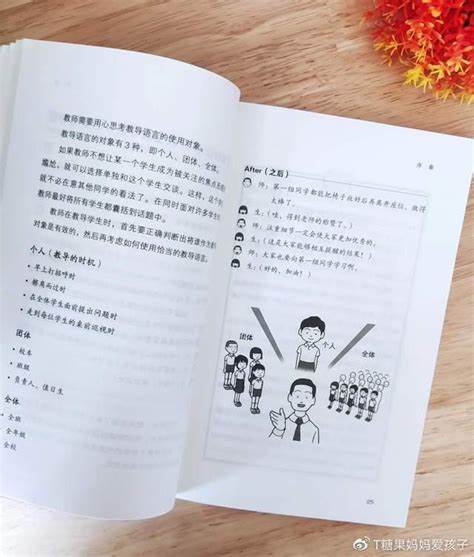 教师需要用心思考教导语言的使用对象。
教导语言的对象有3种，即个人、团体、全体。
如果教师不想让某一个学生成为被关注的焦点而感到
尴尬，就可以选择单独和这个学生交谈。这样，这个学生
就不必在意其他同学的看法了。在同时面对许多学生时，
教师最好将所有学生都囊括到话题中。
教师在教导学生时，首先要正确判断出将谁作为教导
对象是有效的，然后再考虑如何使用恰当的教导语言。
个人（教导的时机）
• 早上打招呼时
• 擦肩而过时
• 在全体学生面前提出问题时
• 走到每位学生的桌前巡视时
团体
• 校车
• 班级
• 负责人、值日生
全体
• 全班
• 全年级
• 全校
序章
After（之后）
师：第一组同学都能把椅子放好后再离开座位，做得
太棒了。
生：（哇，得到老师的称赞了。）
师：注重细节一定会使大家更加优秀的。
生：（这是大家能够相互提醒的结果！）
师：大家也要向第一组同学学习啊。
生：（好的，加油！）
团体
个人
全体
25
@T糖果妈妈爱孩子